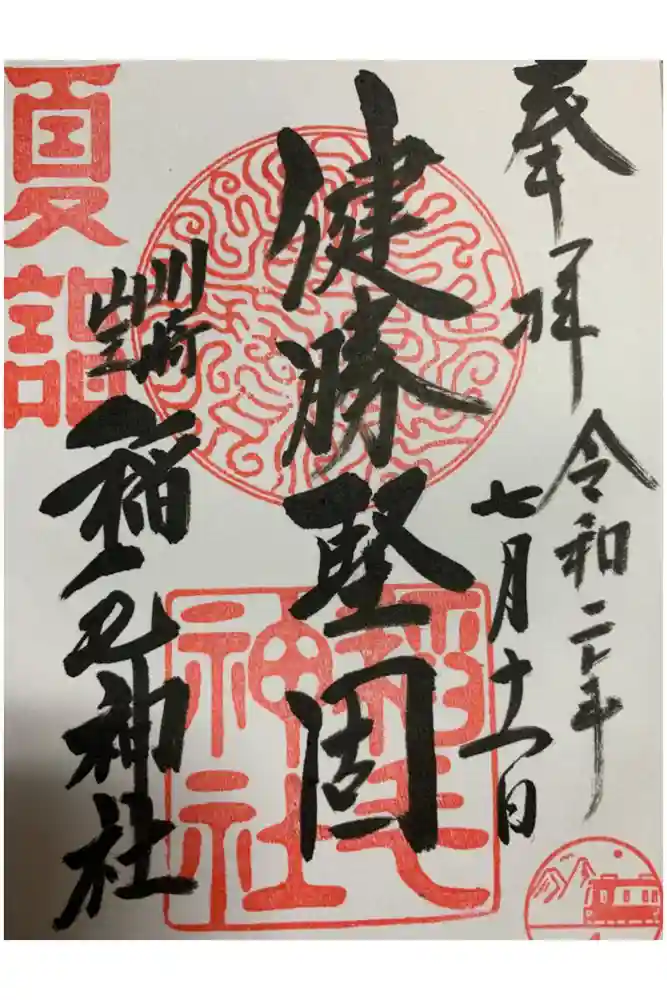 奉拝
令和二年
七月十一日
健勝堅固
稲毛
神社
川崎
山王
稲毛神社
夏詣